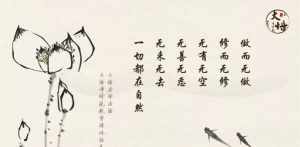 做而无做
修而无修
无有无空
无善无恶
无来无去
一切都在自然
大悟